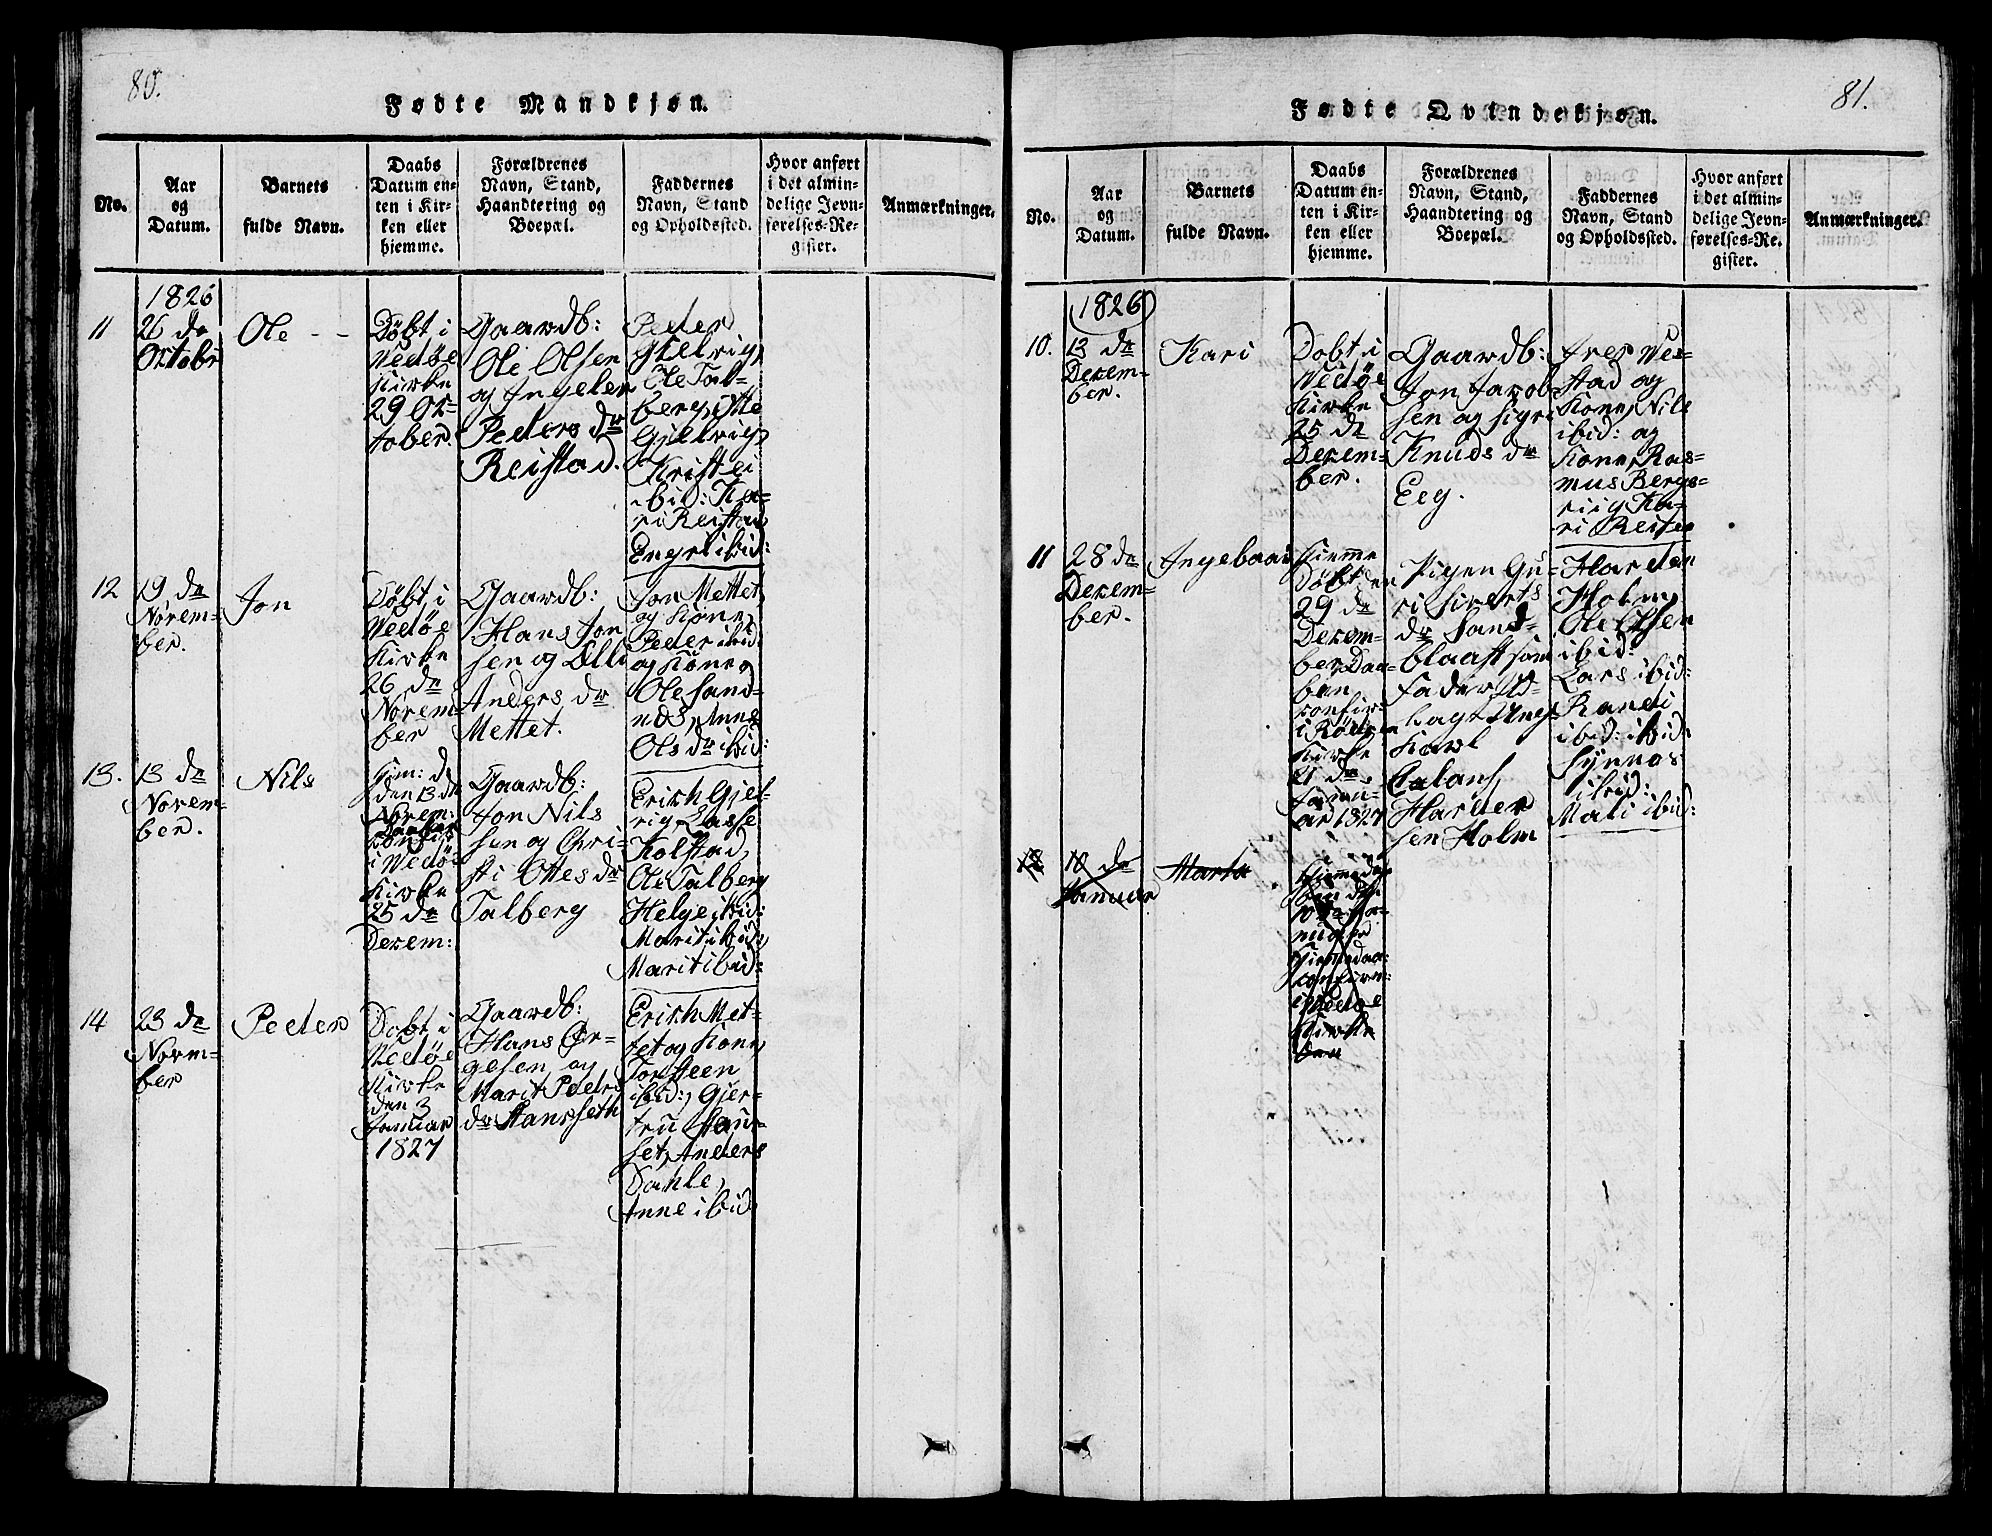 80.
Fødte Mandkjøn.
No.
Aar
og
Datum.
Barnets
fulde Navn.
Daabs
Datum en-
ten i Kir-
ken eller
hjemme.
Forældrenes
Navn, Stand,
Haandtering og
Boepæl.
Faddernes
Navn, Stand
og Opholdssted.
Hvor anført
i det almin-
delige Jevn-
førelses-Re-
gister.
Anmærkninger.
1826
11
26 de
Octobr
Ole
Döbt i
Wedöe
Kirke
29 Oc-
tober
Gaardb:
Ole Olsen
og Ingeler
Peders dr
Reistad.
Peder
Gjelvig,
Ole Tal-
berg, Otte
Gjelvig,
ibid: Ka-
ri Reistad,
Engel ibid:
12
19 de
Novem-
ber.
Jon
Döbt i
Wedöe
Kirke
26 de
Novem-
ber
Gaardb:
Hans Jon
sen og Olli
Anders dr
Mettet.
Jon Mettet,
og Kone,
Peder ibid:
og Kone,
Ole Sand-
nes, Anne
Ols dr ibid:
13.
13 de
Novem-
ber.
Nils
Hjem: d:
den 13 de
Novem:
i Wedöe
Kirke
25 de
Decem:
Gaardb:
Jon Nils
sen og Chri-
sti Ottes dr
Talberg
Erich Gjel-
vig, Lasse
Kolstad,
Ole Talberg
Helge ibid:
Marit ibid:
Marit ibid:
14
23 de
Novem-
ber
Peder
Dobt i
Wedöe
Kirke
den 3
Januar
1827
Gaardb:
Hans Ør-
gesen og
Marit Peders
dr Hansseth
Erich Met-
tet og Kone,
Torsteen
ibid:, Gjer-
tru Hau-
set, Anders
Dahle,
Anne ibid:
81.
Fødte Qvindekjøn.
No.
Aar
og
Datum.
Barnets
fulde Navn.
Daabs
Datum en-
ten i Kir-
ken eller
hjemme.
Forældrenes
Navn, Stand,
Haandtering og
Boepæl.
Faddernes
Navn, Stand
og Opholdssted.
Hvor anført
i det almin-
delige Jevn-
førelses-Re-
gister.
Anmærkninger.
1826
10.
13 de
Decem-
ber.
Kari
Dobt i
Wedöe
Kirke
25 de
Decem-
ber.
Gaardb:
Jon Jacob
sen og Sigri
Knuds dr
Eeg.
Iver Ve-
stad og
Kone, Nils
ibid: og
Kone, Ras-
mus Bergs-
viig, Ka-
ri Reistad
11
28 de
Decem-
ber.
Ingebaar
Hieme
Döbt den
29 de
Decem-
ber Daa-
ben
confir-
i Röden
Kirke
21 de
Janu-
ar 1827
Pigen Gu-
ri Siverts
dr Sand-
blaast som
Fader Ud-
lagt Ung-
Karl
Halder
sen Holm
Halden
Holm,
Ole Olsen
ibid:
Lars ibid:
Randi
ibid:
Synnøs
ibid:
Mali ibid:
12
10 de
Januar
Marta
i Wedöe
Kirke
den